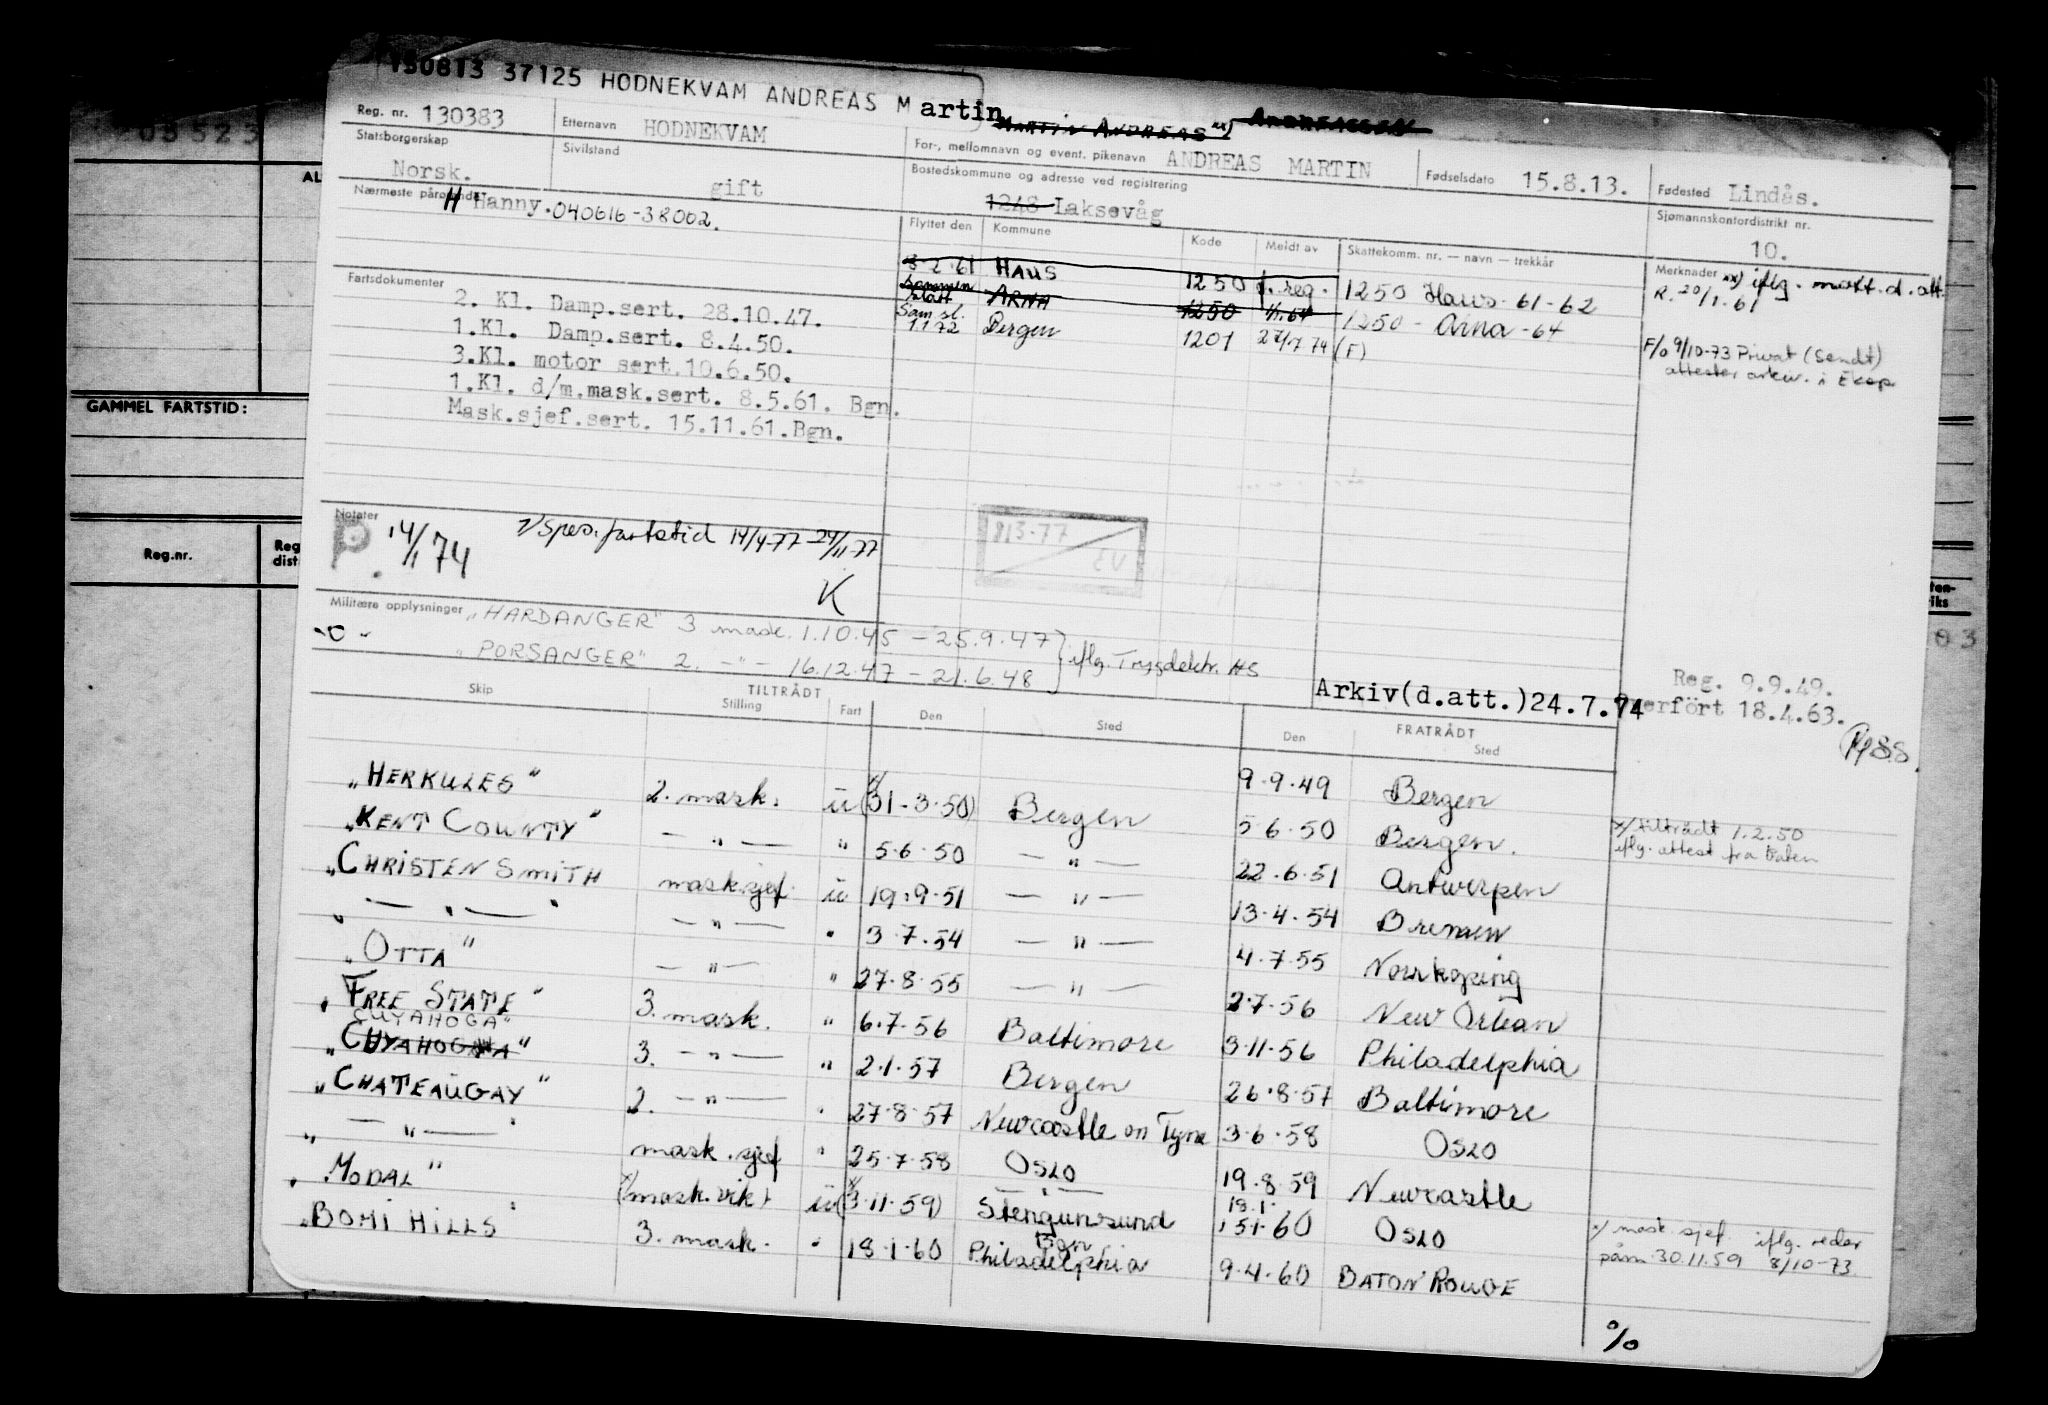 130813 37125 HODNEKVAM ANDREAS Martin
MARTIN ANDREAS xx) ANDREASSEN
Reg. nr. 130383 Etternavn HODNEKVAM For-, mellomnavn og event. pikenavn ANDREAS MARTIN Fødselsdato 15.8.13. Fødested Lindås.
Statsborgerskap Norsk. Sivilstand gift Bostedskommune og adresse ved registrering 1248 Laksevåg Sjømannskontordistrikt nr. 10.
Nærmeste pårørende H Hanny. 040616-38002.
Flyttet den Kommune Kode Meldt av Skattekomm. nr. — navn — trekkår Merknader xx) iflg. mott. d. att.
R. 20/1. 61
8-2-61 HAUS 1250 f. reg. 1250 Haus - 61-62
Sammen slått ARNA 1250 1/1.64 1250 - Arna - 64
Sam sl. 1.1.72 Bergen 1201 27/1 74 (F)
F/o 9/10-73 Privat (Sendt)
attester arkiv. i Eksp
Fartsdokumenter
2. Kl. Damp.sert. 28.10.47.
1.Kl. Damp.sert. 8.4.50.
3.Kl. motor sert.10.6.50.
1.Kl. d/m.mask.sert. 8.5.61. Bgn.
Mask.sjef.sert. 15.11.61.Bgn.
Notater
P. 14/1 74 Spes. fartstid 14/4-77 - 24/11-77
K
813-77
EU
Militære opplysninger "HARDANGER" 3 mask. 1.10.45 - 25.9.47
-o- "PORSANGER" 2. -"- 16.12.47 - 21.6.48 iflg. Trygdektr. HS
Arkiv(d.att.)24.7.74
Reg. 9.9.49.
erført 18.4.63.
TILTRÅDT FRATRÅDT
Skip Stilling Fart Den Sted Den Sted
"HERKULES" 2. mask. u x/ (31-3-50) Bergen 9.9.49 Bergen
"KENT COUNTY" — " — " 5.6.50 — " — 5.6.50 Bergen. x/ tiltrådt 1.2.50
iflg. attest fra båten
"CHRISTEN SMITH mask.sjef. u 19.9.51 — " — 22.6.51 Antwerpen
" — " — " — " — " 3.7.54 — " — 13.4.54 Bremen
"OTTA" — " — " 27.8.55 — " — 4.7.55 Norrkøping
"FREE STATE" 3. mask. " 6.7.56 Baltimore 2.7.56 New Orlean
CUYAHOGA"
"CUYAHOGA" 3. — " — " 2.1.57 Bergen 3.11.56 Philadelphia
"CHATEAUGAY" 2. — " — " 27.8.57 Newcastle on Tyne 26.8.57 Baltimore
" — " — " mask.sjef " 25.7.58 OSLO 3.6.58 OSLO
"MODAL" x) (mask.vik) u x/ (3.11.59) Stengunsund 19.8.59 Newcastle
"BOMI HILLS" 3. mask. " 18.1.60 Philadelphia 18.1. 15.1.60 OSLO x/ mask sjef iflg. reder
påm 30.11.59 8/10-73.
9.4.60 BATON ROUGE
%
GAMMEL FARTSTID:
Reg.nr.